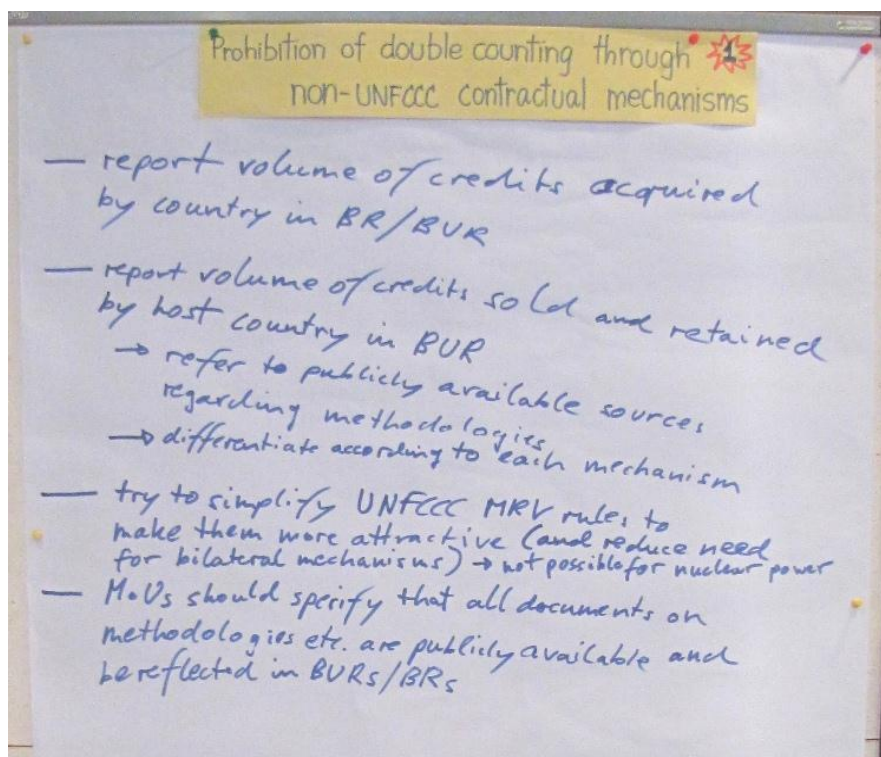 Prohibition of double counting through 1
non-UNFCCC contractual mechanisms
— report volume of credits acquired
by country in BR/BUR
— report volume of credits sold and retained
by host country in BUR
→ refer to publicly available sources
regarding methodologies
→ differentiate according to each mechanism
— try to simplify UNFCCC MRV rules to
make them more attractive (and reduce need
for bilateral mechanisms) → not possible for nuclear power
— MoUs should specify that all documents on
methodologies etc. are publicly available and
be reflected in BURs/BRs